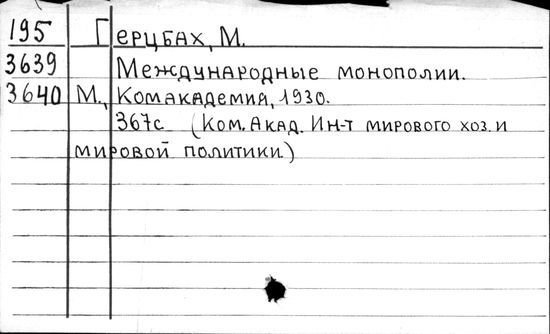 195 Герцбах, М.
3639 Международные монополии.
3640 М., Комакадемия, 1930.
367с (Ком. Акад. Ин-т мирового хоз. и
мировой политики)